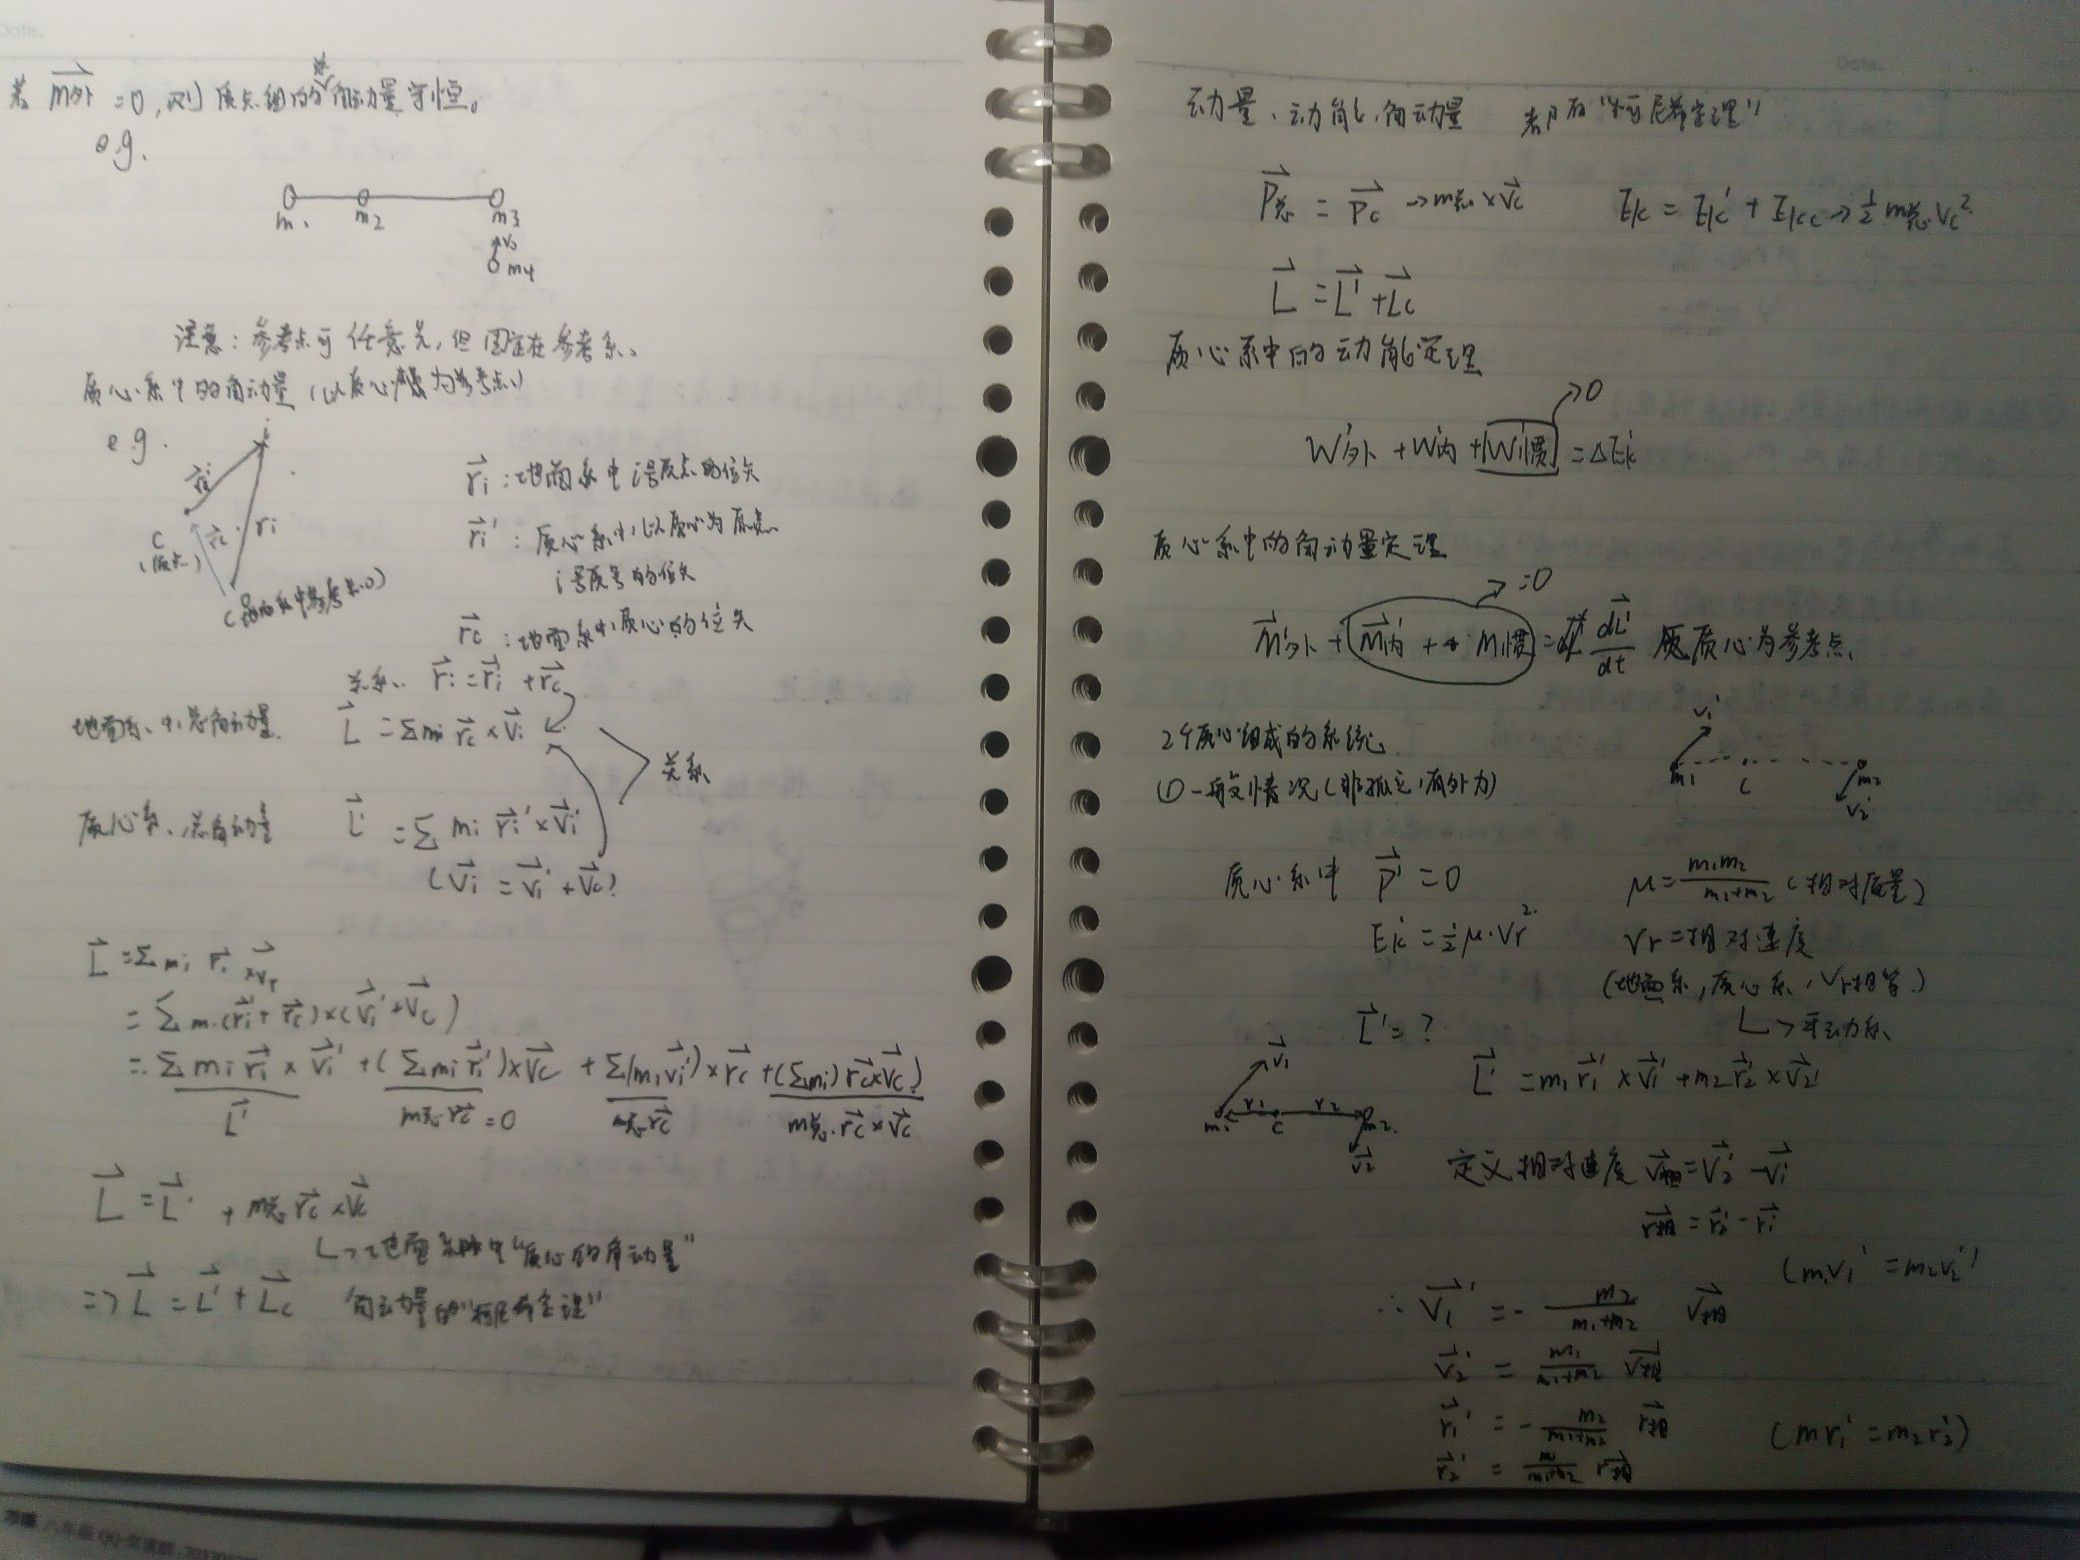 若 M外 = 0, 则质点组的总角动量守恒。
eg.
m1 m2 m3
v0
m4
注意: 参考点可任意选, 但固定在参考系、
质心系中的角动量 (以质心为参考点)
eg.
i
ri'
C
(质点)
rc
ri
ri : 地面系中 i号质点的位矢
ri' : 质心系中, 以质心为原点
i号质点的位矢
rc : 地面系中, 质心的位矢
关系、 ri = ri' + rc
地面系、中、总角动量. L = Σmi rc × vi
关系
质心系、总角动量 L' = Σ mi ri' × vi'
(vi = vi' + vc)
L = Σmi ri × vr
= Σ mi (ri' + rc) × (vi' + vc)
= Σ mi ri' × vi' + (Σmi ri') × vc + Σ(mi vi') × rc + (Σmi) rc × vc
L' m总 rc' = 0 m总 rc m总 · rc × vc
L = L' + m总 rc × vc
↳ 地面系中"质心的角动量"
=> L = L' + Lc 角动量的"柯尼希定理"
动量、动能、角动量 都有"柯尼希定理"
P总 = Pc → m总 × vc Ek = Ek' + Ekc → ½ m总 vc²
L = L' + Lc
质心系中的动能定理
→ 0
W'外 + W'内 + W'惯 = ΔEk'
质心系中的角动量定理
→ =0
M'外 + M'内 + M惯 = dL'/dt 质心为参考点、
2个质心组成的系统
① 一般情况 (非孤立, 有外力)
v1'
m1 C m2
v2'
质心系中 P' = 0 μ = m1m2/(m1+m2) (相对质量)
Ek' = ½ μ · vr² vr = 相对速度
(地面系, 质心系, vr相等)
L' = ? ↳ 平动系
v1
m1 r1 C r2 m2
v2
L' = m1 r1' × v1' + m2 r2' × v2'
定义相对速度 v相 = v2' - v1'
r相 = r2' - r1'
(m1v1' = m2v2')
∴ v1' = - m2/(m1+m2) v相
v2' = m1/(m1+m2) v相
r1' = - m2/(m1+m2) r相 (mr1' = m2r2')
r2' = m1/(m1+m2) r相